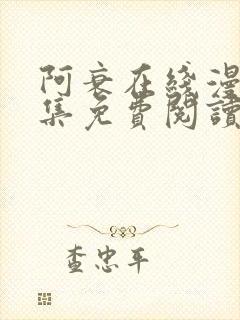 阿衰在綫漫
集免費閱讀
查忠平